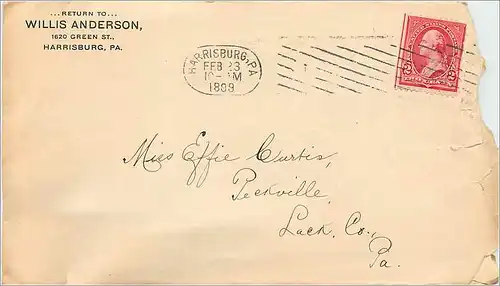 ...RETURN TO...
WILLIS ANDERSON,
1620 GREEN ST.,
HARRISBURG, PA.
HARRISBURG, PA.
FEB 23
10-AM
1899
2 2
Miss Effie Curtis,
Peckville,
Lack. Co.,
Pa.